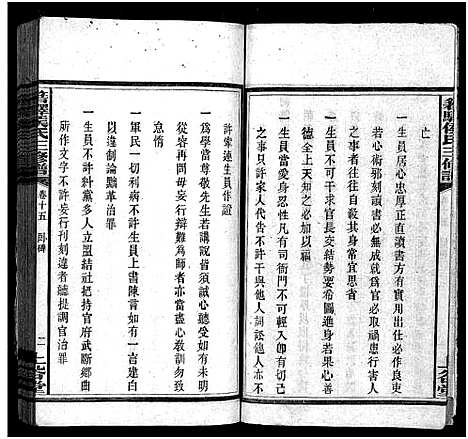 亡
一生員居心忠厚正直讀書方有實用出仕必作良吏若
心術邪刻讀書必無成就為官必取禍患行害人
之事者往往自殺其身常宜思省
一生員不可干求官長交結勢要希圖進身若果心善
德全上天知之必加以福
一生員當愛身忍性凡有司衙門不可輕入即有切己
之事只許家人代告不許干與他人詞訟他人亦不
許牽連生員作證
一為學當尊敬先生若講說皆須誠心聽受如有未明
從容再問毋妄行辯難為師者亦當盡心教訓勿致
怠惰
一軍民一切利病不許生員上書陳言如有一言建白
以違制論黜革治罪
一生員不許糾黨多人立盟結社把持官府武斷鄉曲
所作文字不許妄行刊刻違者聽提調官治罪
卷十五 臥碑
二